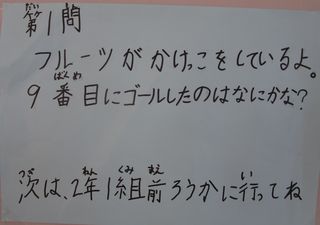 第1問
フルーツがかけっこをしているよ。
9番目にゴールしたのはなにかな?
次は、2年1組前ろうかに行ってね